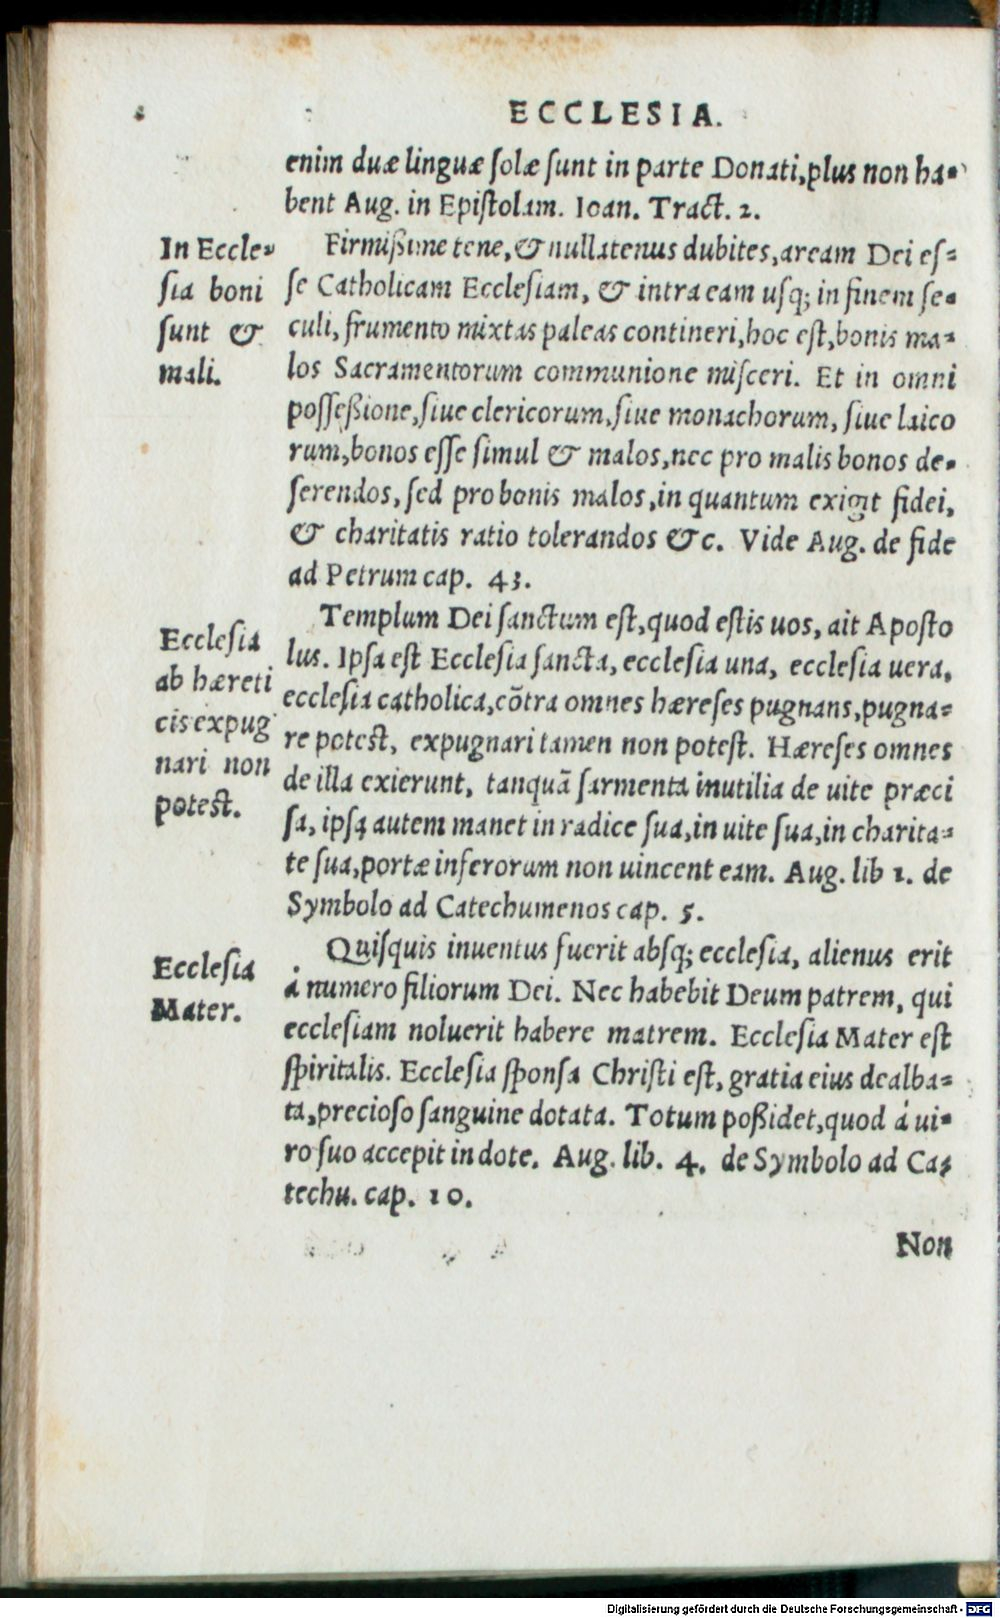 ECCLESIA.
enim duæ linguæ ſolæ ſunt in parte Donati,plus non ha-
bent Aug. in Epiſtolam. Ioan. Tract. 2.
In Eccle-
ſia boni
ſunt &
mali.
Firmißime tene,& nullatenus dubites,aream Dei eſ-
ſe Catholicam Eccleſiam, & intra eam uſq; in finem ſe-
culi, frumento mixtas paleas contineri,hoc eſt,bonis ma-
los Sacramentorum communione miſceri. Et in omni
poſſeßione,ſiue clericorum,ſiue monachorum, ſiue laico
rum,bonos eſſe ſimul & malos,nec pro malis bonos de-
ſerendos, ſed pro bonis malos,in quantum exigit fidei,
& charitatis ratio tolerandos &c. Vide Aug. de fide
ad Petrum cap. 43.
Eccleſia
ab hæreti
cis expug
nari non
poteſt.
Templum Dei ſanctum eſt,quod eſtis uos, ait Apoſto
lus. Ipſa eſt Eccleſia ſancta, eccleſia una, eccleſia uera,
eccleſia catholica,cõtra omnes hæreſes pugnans,pugna-
re poteſt, expugnari tamen non poteſt. Hæreſes omnes
de illa exierunt, tanquã ſarmenta inutilia de uite præci
ſa, ipſa autem manet in radice ſua,in uite ſua,in charita-
te ſua,portæ inferorum non uincent eam. Aug. lib 1. de
Symbolo ad Catechumenos cap. 5.
Eccleſia
Mater.
Quiſquis inuentus fuerit abſq; eccleſia, alienus erit
á numero filiorum Dei. Nec habebit Deum patrem, qui
eccleſiam noluerit habere matrem. Eccleſia Mater eſt
ſpiritalis. Eccleſia ſponſa Chriſti eſt, gratia eius dealba-
ta,precioſo ſanguine dotata. Totum poßidet,quod á ui-
ro ſuo accepit in dote. Aug. lib. 4. de Symbolo ad Ca-
techu. cap. 10.
Non
Digitalisierung gefördert durch die Deutsche Forschungsgemeinschaft - DFG